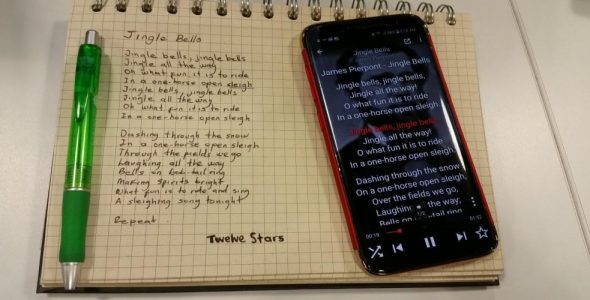 Jingle Bells
Jingle bells, jingle bells
Jingle all the way
Oh what fun it is to ride
In a one-horse open sleigh
Jingle bells, jingle bells
Jingle all the way
Oh what fun it is to ride
In a one-horse open sleigh
Dashing through the snow
In a one-horse open sleigh
Through the fields we go
Laughing all the way
Bells on bob-tail ring
Making spirits bright
What fun is to ride and sing
A sleighing song tonight
Repeat
Twelve Stars
Jingle Bells
James Pierpont - Jingle Bells
Jingle bells, jingle bells,
Jingle all the way!
O what fun it is to ride
In a one-horse open sleigh
Jingle bells, jingle bells,
Jingle all the way!
O what fun it is to ride
In a one-horse open sleigh
Dashing through the snow
On a one-horse open sleigh,
Over the fields we go,
Laughing the way;
Bells on tail ring
00:19
01:57